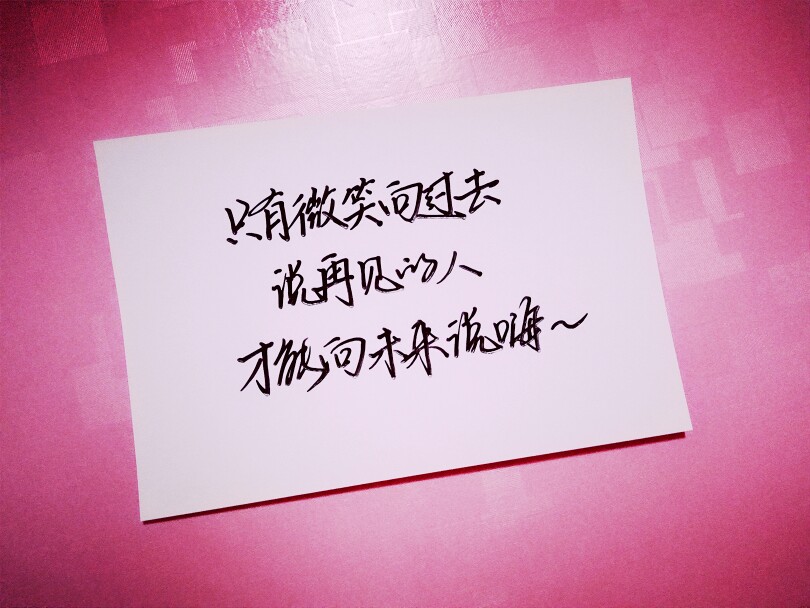 只有微笑向过去
说再见的人
才能向未来说嗨～